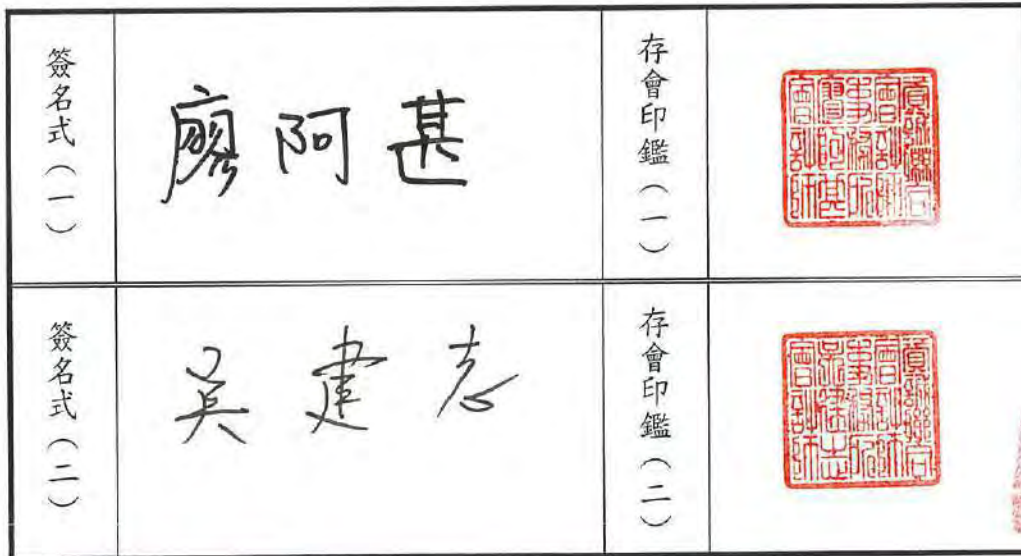 簽名式(一)
廖阿甚
存會印鑑(一)
資誠聯合
會計師
事務所
廖阿甚
會計師
簽名式(二)
吳建志
存會印鑑(二)
資誠聯合
會計師
事務所
吳建志
會計師